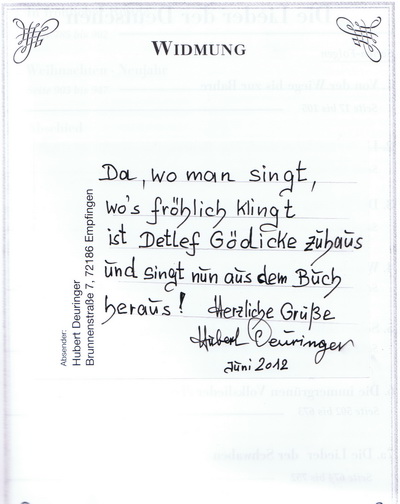 WIDMUNG
Da, wo man singt,
wo's fröhlich klingt
ist Detlef Gödicke zuhaus
und singt nun aus dem Buch
heraus! Herzliche Grüße
Hubert Deuringer
Juni 2012
Absender:
Hubert Deuringer
Brunnenstraße 7, 72186 Empfingen